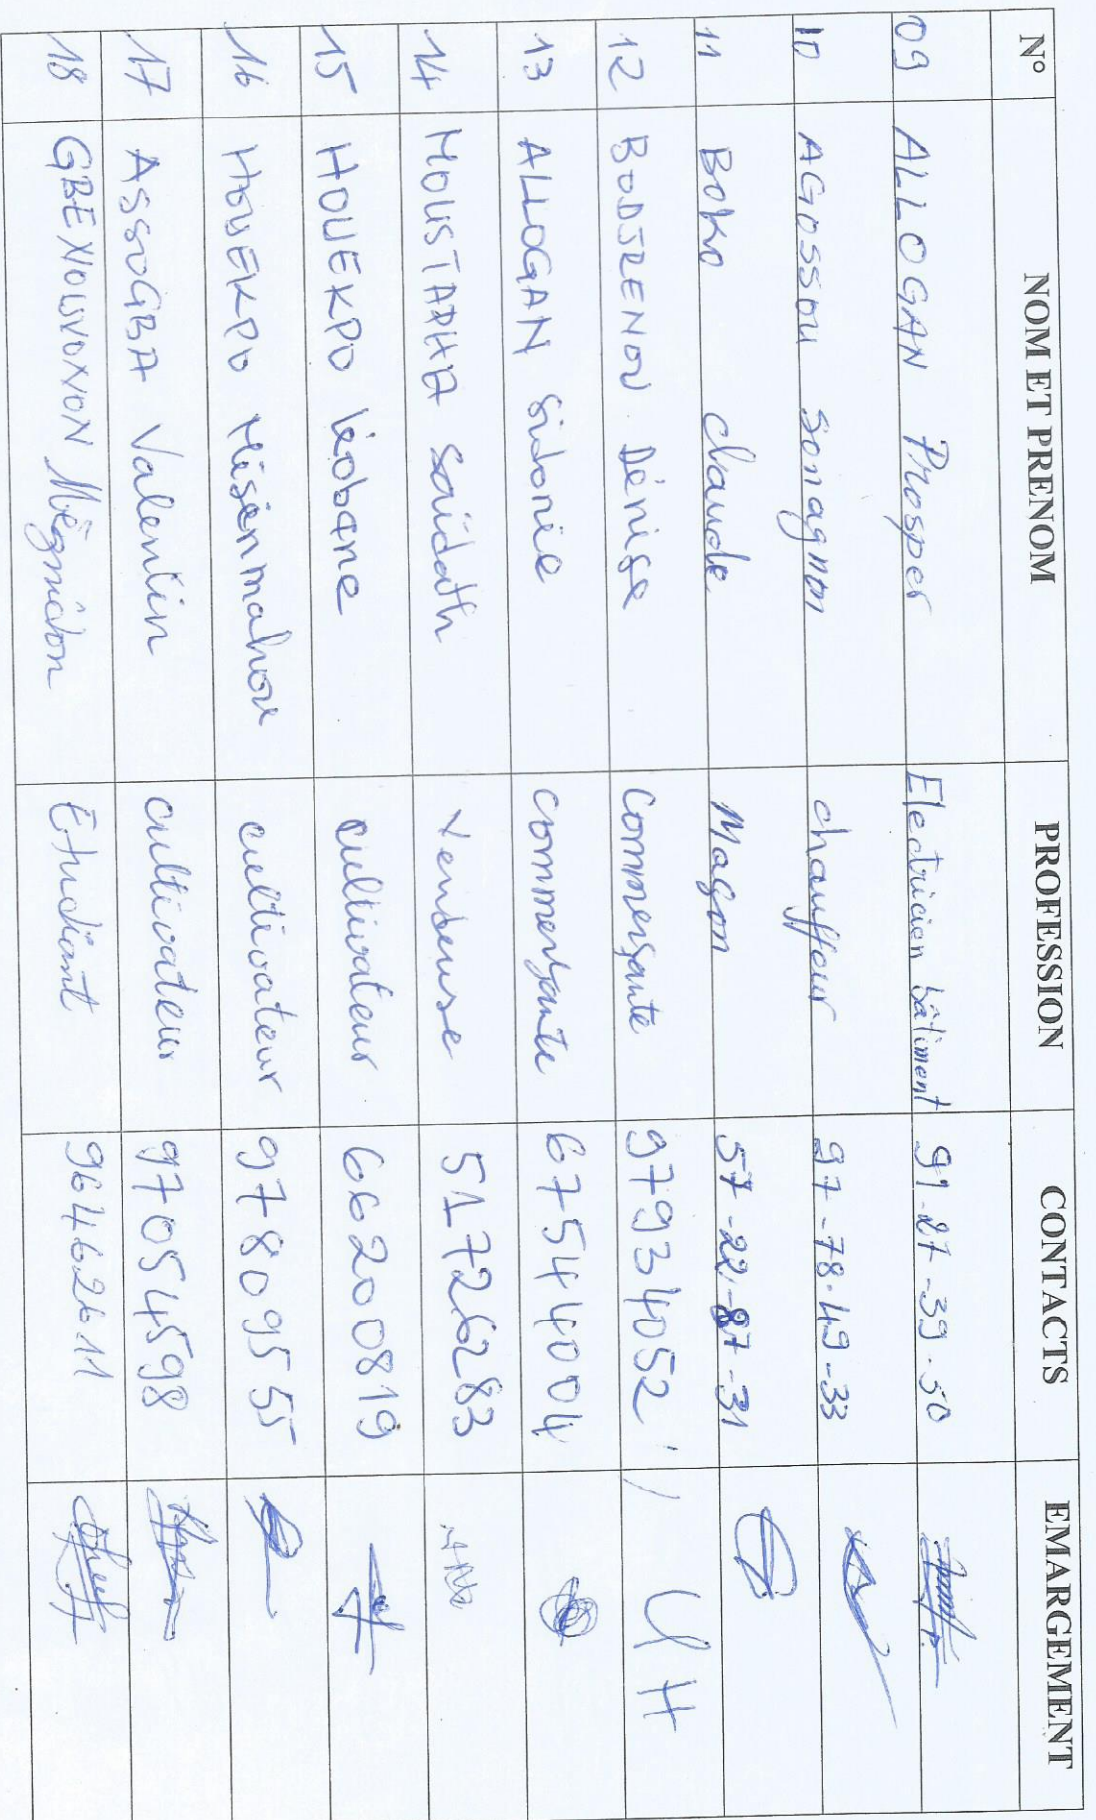 N° NOM ET PRENOM PROFESSION CONTACTS EMARGEMENT
09 ALLOGAN Prosper Electricien bâtiment 91-27-39-50
10 AGOSSOU Sonagnon chauffeur 97-78-49-33
11 BOKO claude Maçon 57-22-87-31
12 BODJRENOU Dénise Commerçante 97934052
13 ALLOGAN Sidonie commerçante 67544004
14 MOUSTAPHA Saïdath Vendeuse 51726283
15 HOUEKPO Léobane cultivateur 66200819
16 HOUEKPO cultivateur 97809555
17 ASSOGBA Valentin cultivateur 97054598
18 Etudiant 96462611